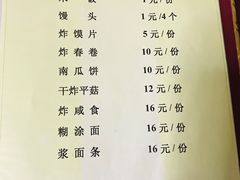 1 元 / 份
馒 头 1 元 /4 个
炸 馍 片 5 元 / 份
炸 春 卷 10 元 / 份
南 瓜 饼 10 元 / 份
干 炸 平 菇 12 元 / 份
炸 咸 食 16 元 / 份
糊 涂 面 16 元 / 份
浆 面 条 16 元 / 份